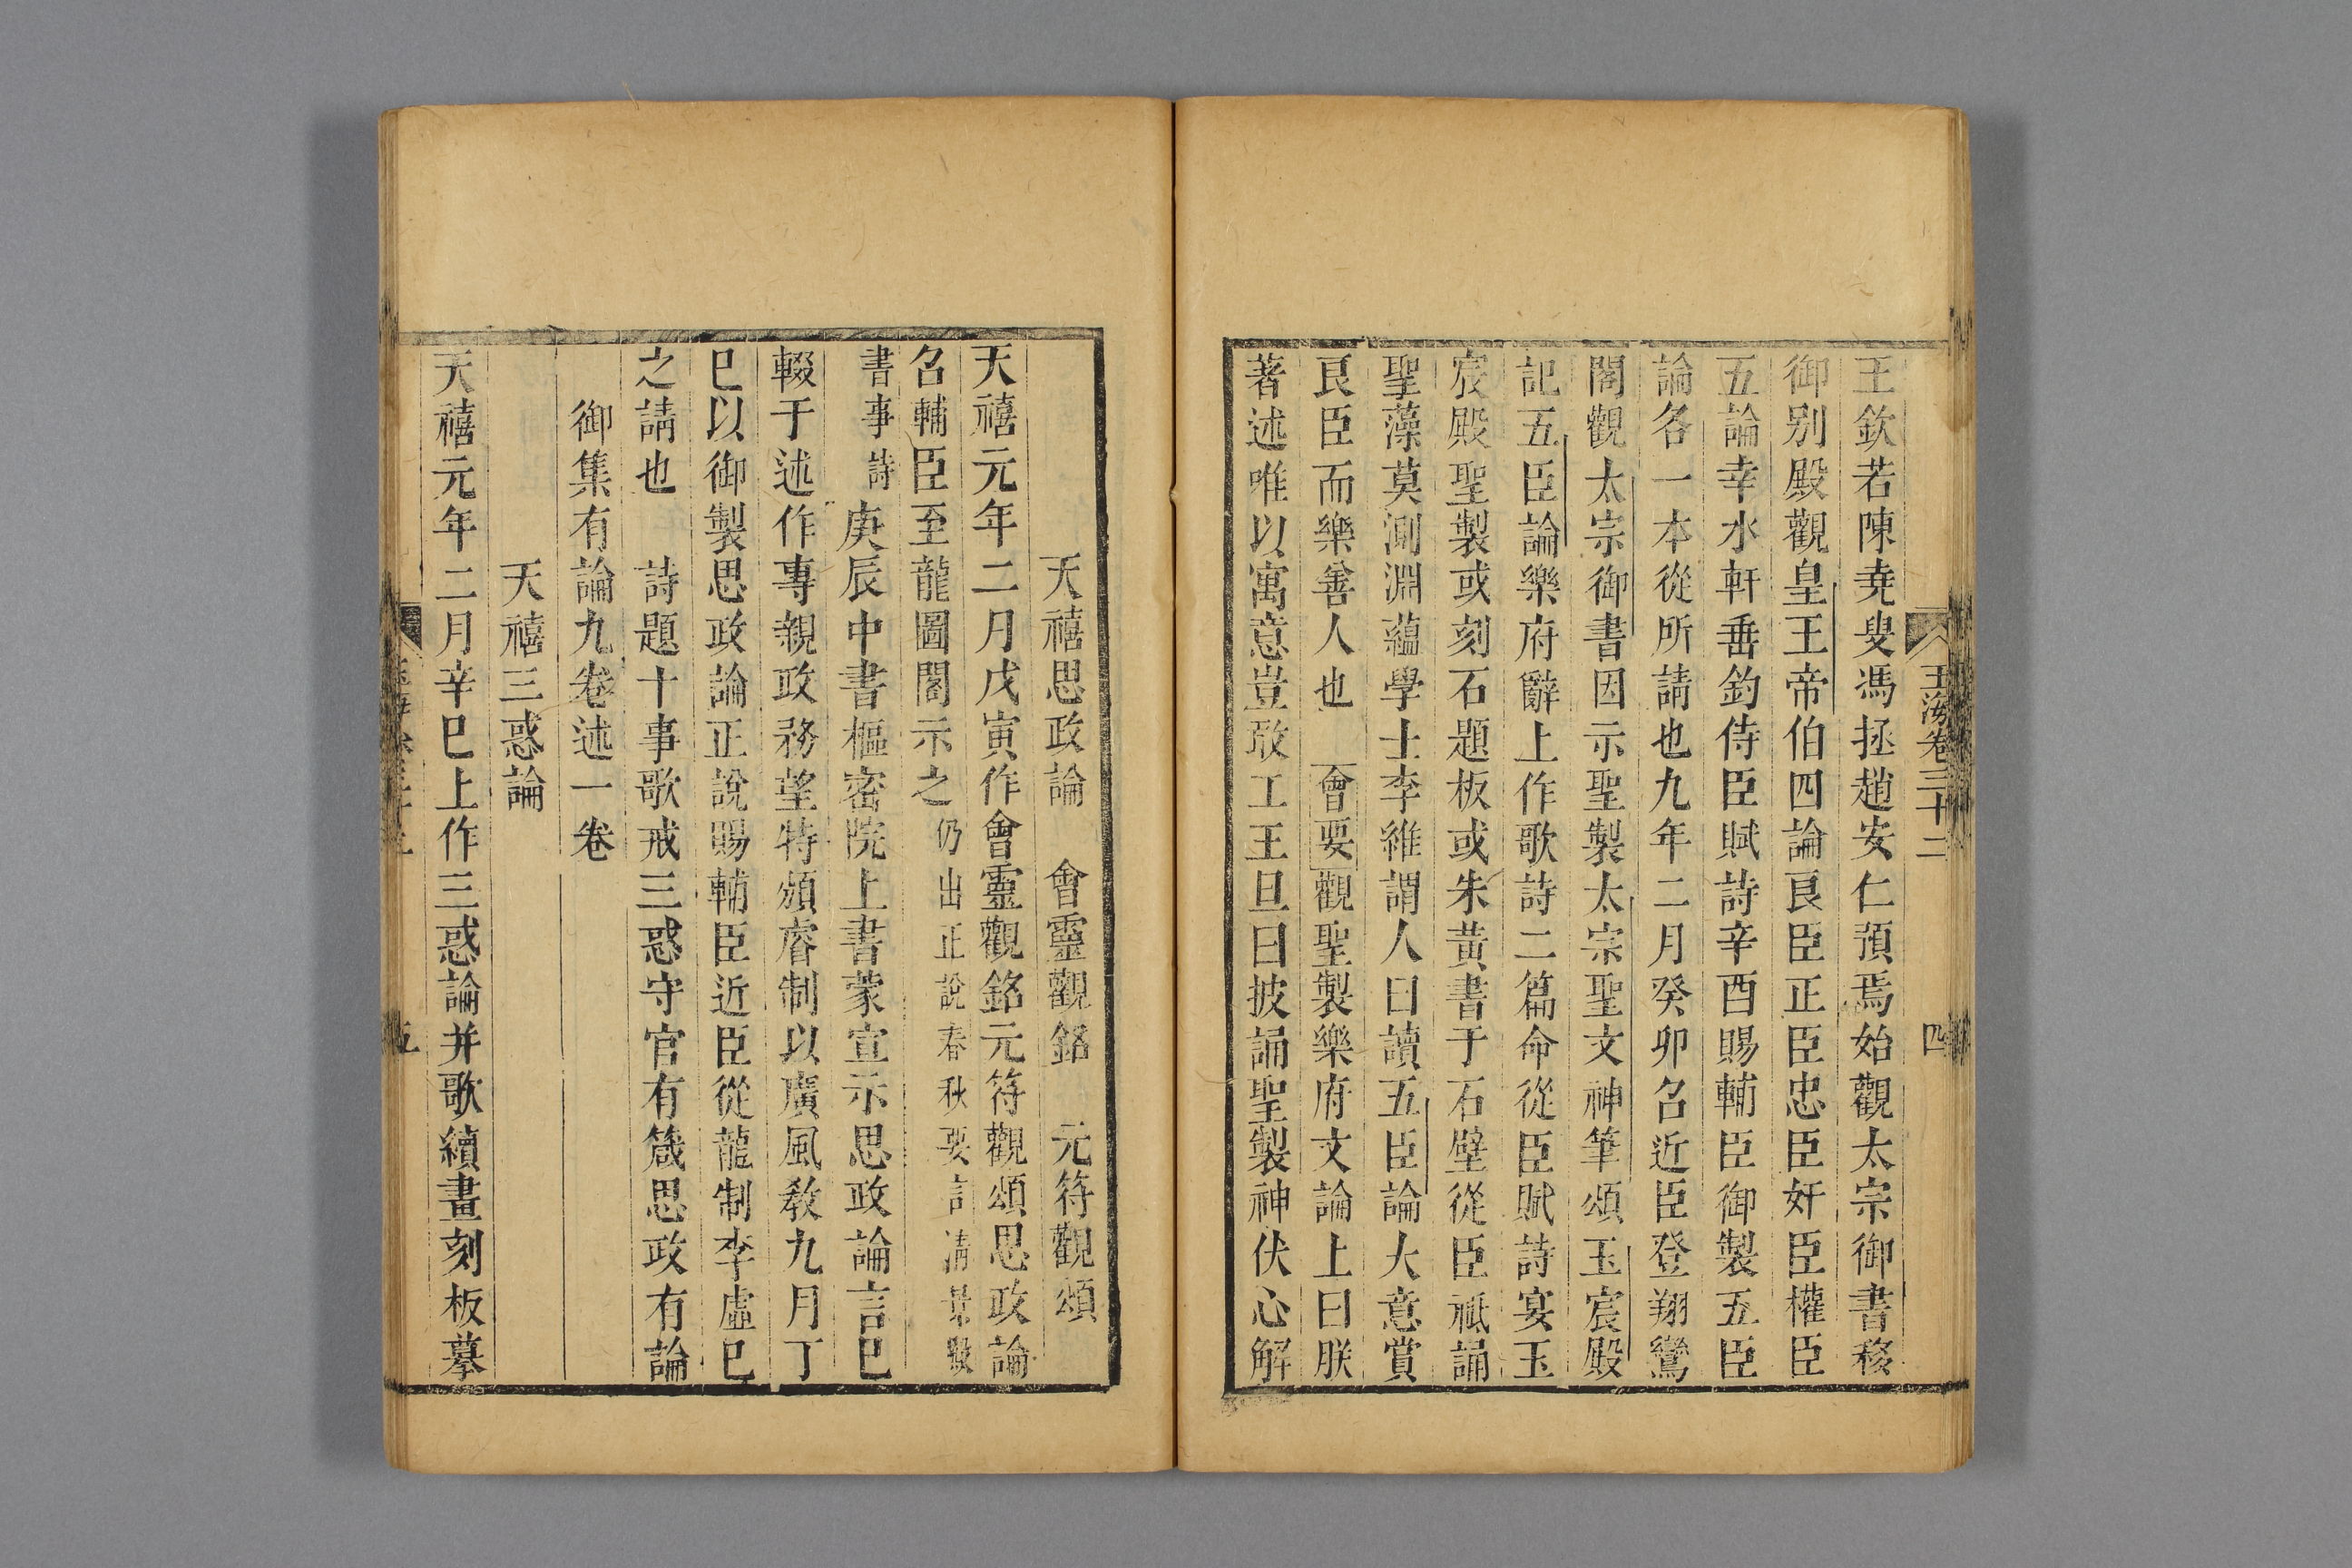 玉海卷三十二
四
王欽若陳堯叟馮拯趙安仁預焉始觀太宗御書移
御別殿觀皇王帝伯四論良臣正臣忠臣奸臣權臣
五論幸水軒垂釣侍臣賦詩辛酉賜輔臣御製五臣
論各一本從所請也九年二月癸卯召近臣登翔鸞
閣觀太宗御書因示聖製太宗聖文神筆頌玉宸殿
記五臣論樂府辭上作歌詩二篇命從臣賦詩宴玉
宸殿聖製或刻石題板或朱黃書于石壁從臣祗誦
聖藻莫測淵蘊學士李維謂人曰讀五臣論大意賞
良臣而樂善人也 會要觀聖製樂府文論上曰朕
著述唯以寓意豈敢工王旦曰披誦聖製神伏心解
天禧思政論 會靈觀銘 元符觀頌
天禧元年二月戊寅作會靈觀銘元符觀頌思政論
召輔臣至龍圖閣示之仍出正說春秋要言清景殿
書事詩庚辰中書樞密院上書蒙宣示思政論言已
輟于述作專親政務望特頒睿制以廣風教九月丁
巳以御製思政論正說賜輔臣近臣從龍制李虛已
之請也 詩題十事歌戒三惑守官有箴思政有論
御集有論九卷述一卷
天禧三惑論
天禧元年二月辛巳上作三惑論并歌續畫刻板摹
五